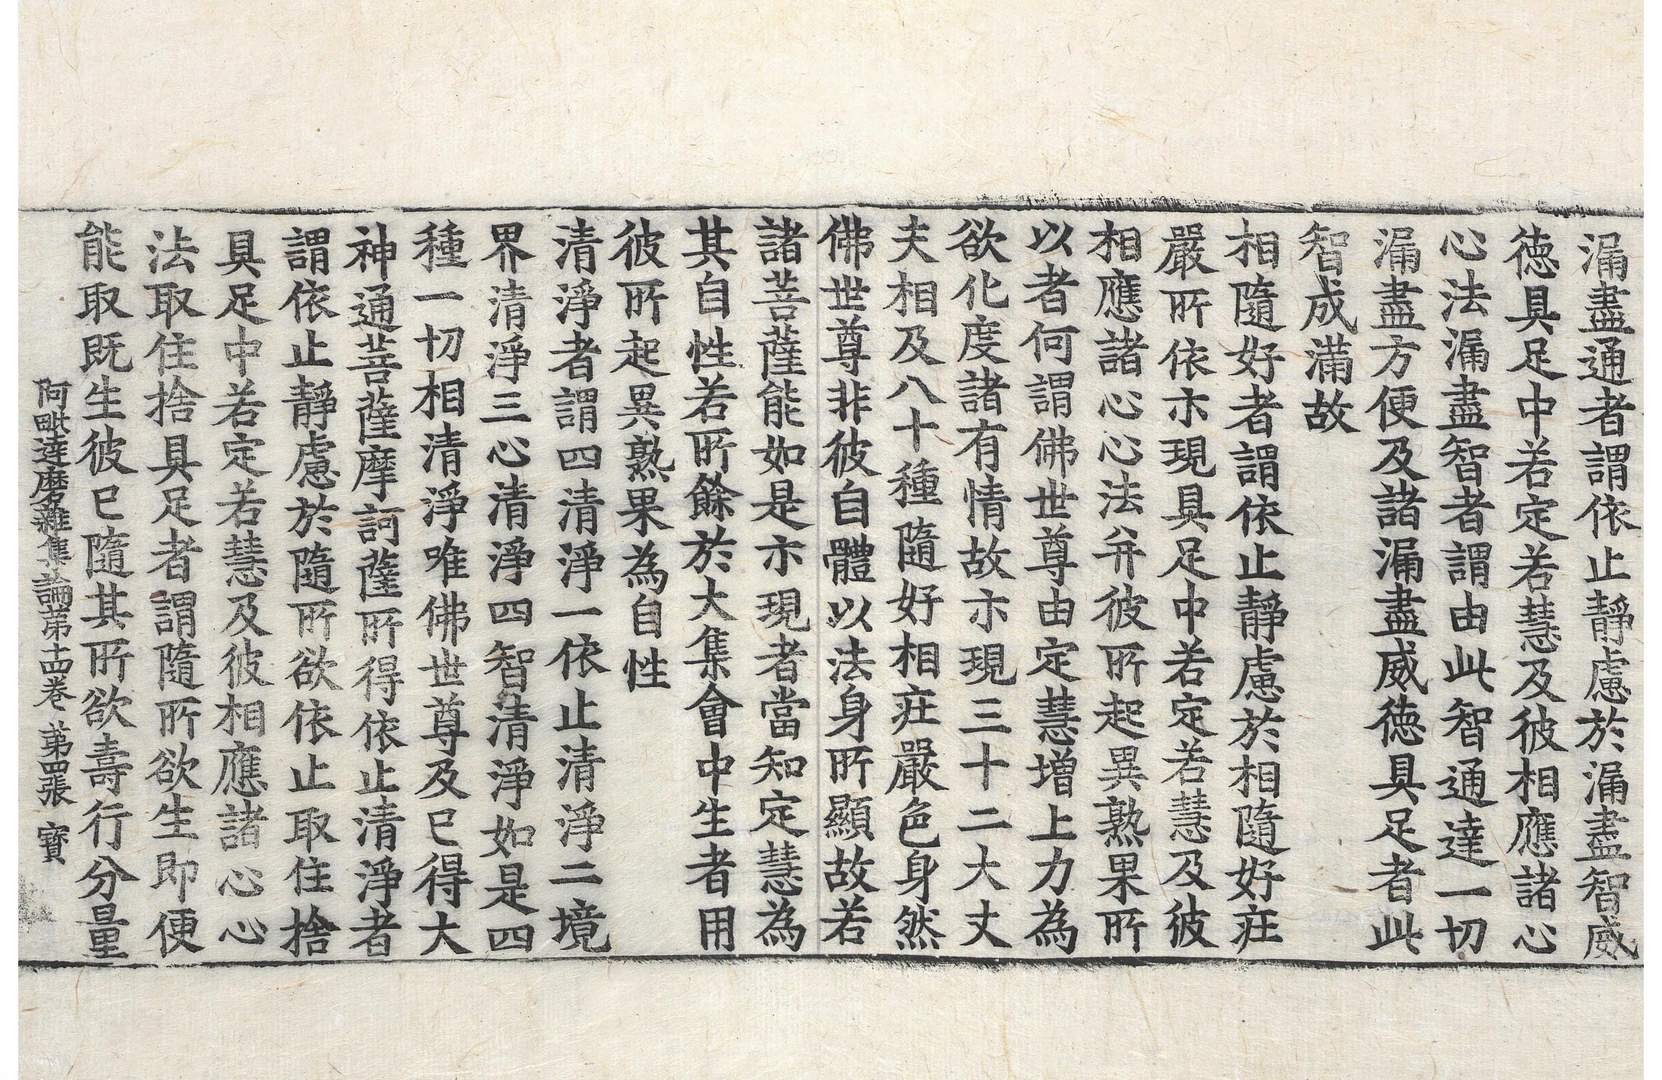 漏盡通者謂依止靜慮於漏盡智威
德具足中若定若慧及彼相應諸心
心法漏盡智者謂由此智通達一切
漏盡方便及諸漏盡威德具足者此
智成滿故
相隨好者謂依止靜慮於相隨好莊
嚴所依示現具足中若定若慧及彼
相應諸心心法并彼所起異熟果所
以者何謂佛世尊由定慧增上力為
欲化度諸有情故示現三十二大丈
夫相及八十種隨好相莊嚴色身然
佛世尊非彼自體以法身所顯故若
諸菩薩能如是示現者當知定慧為
其自性若所餘於大集會中生者用
彼所起異熟果為自性
清淨者謂四清淨一依止清淨二境
界清淨三心清淨四智清淨如是四
種一切相清淨唯佛世尊及已得大
神通菩薩摩訶薩所得依止清淨者
謂依止靜慮於隨所欲依止取住捨
具足中若定若慧及彼相應諸心心
法取住捨具足者謂隨所欲生即便
能取既生彼已隨其所欲壽行分量
阿毗達磨雜集論第十四卷 第四張 寶